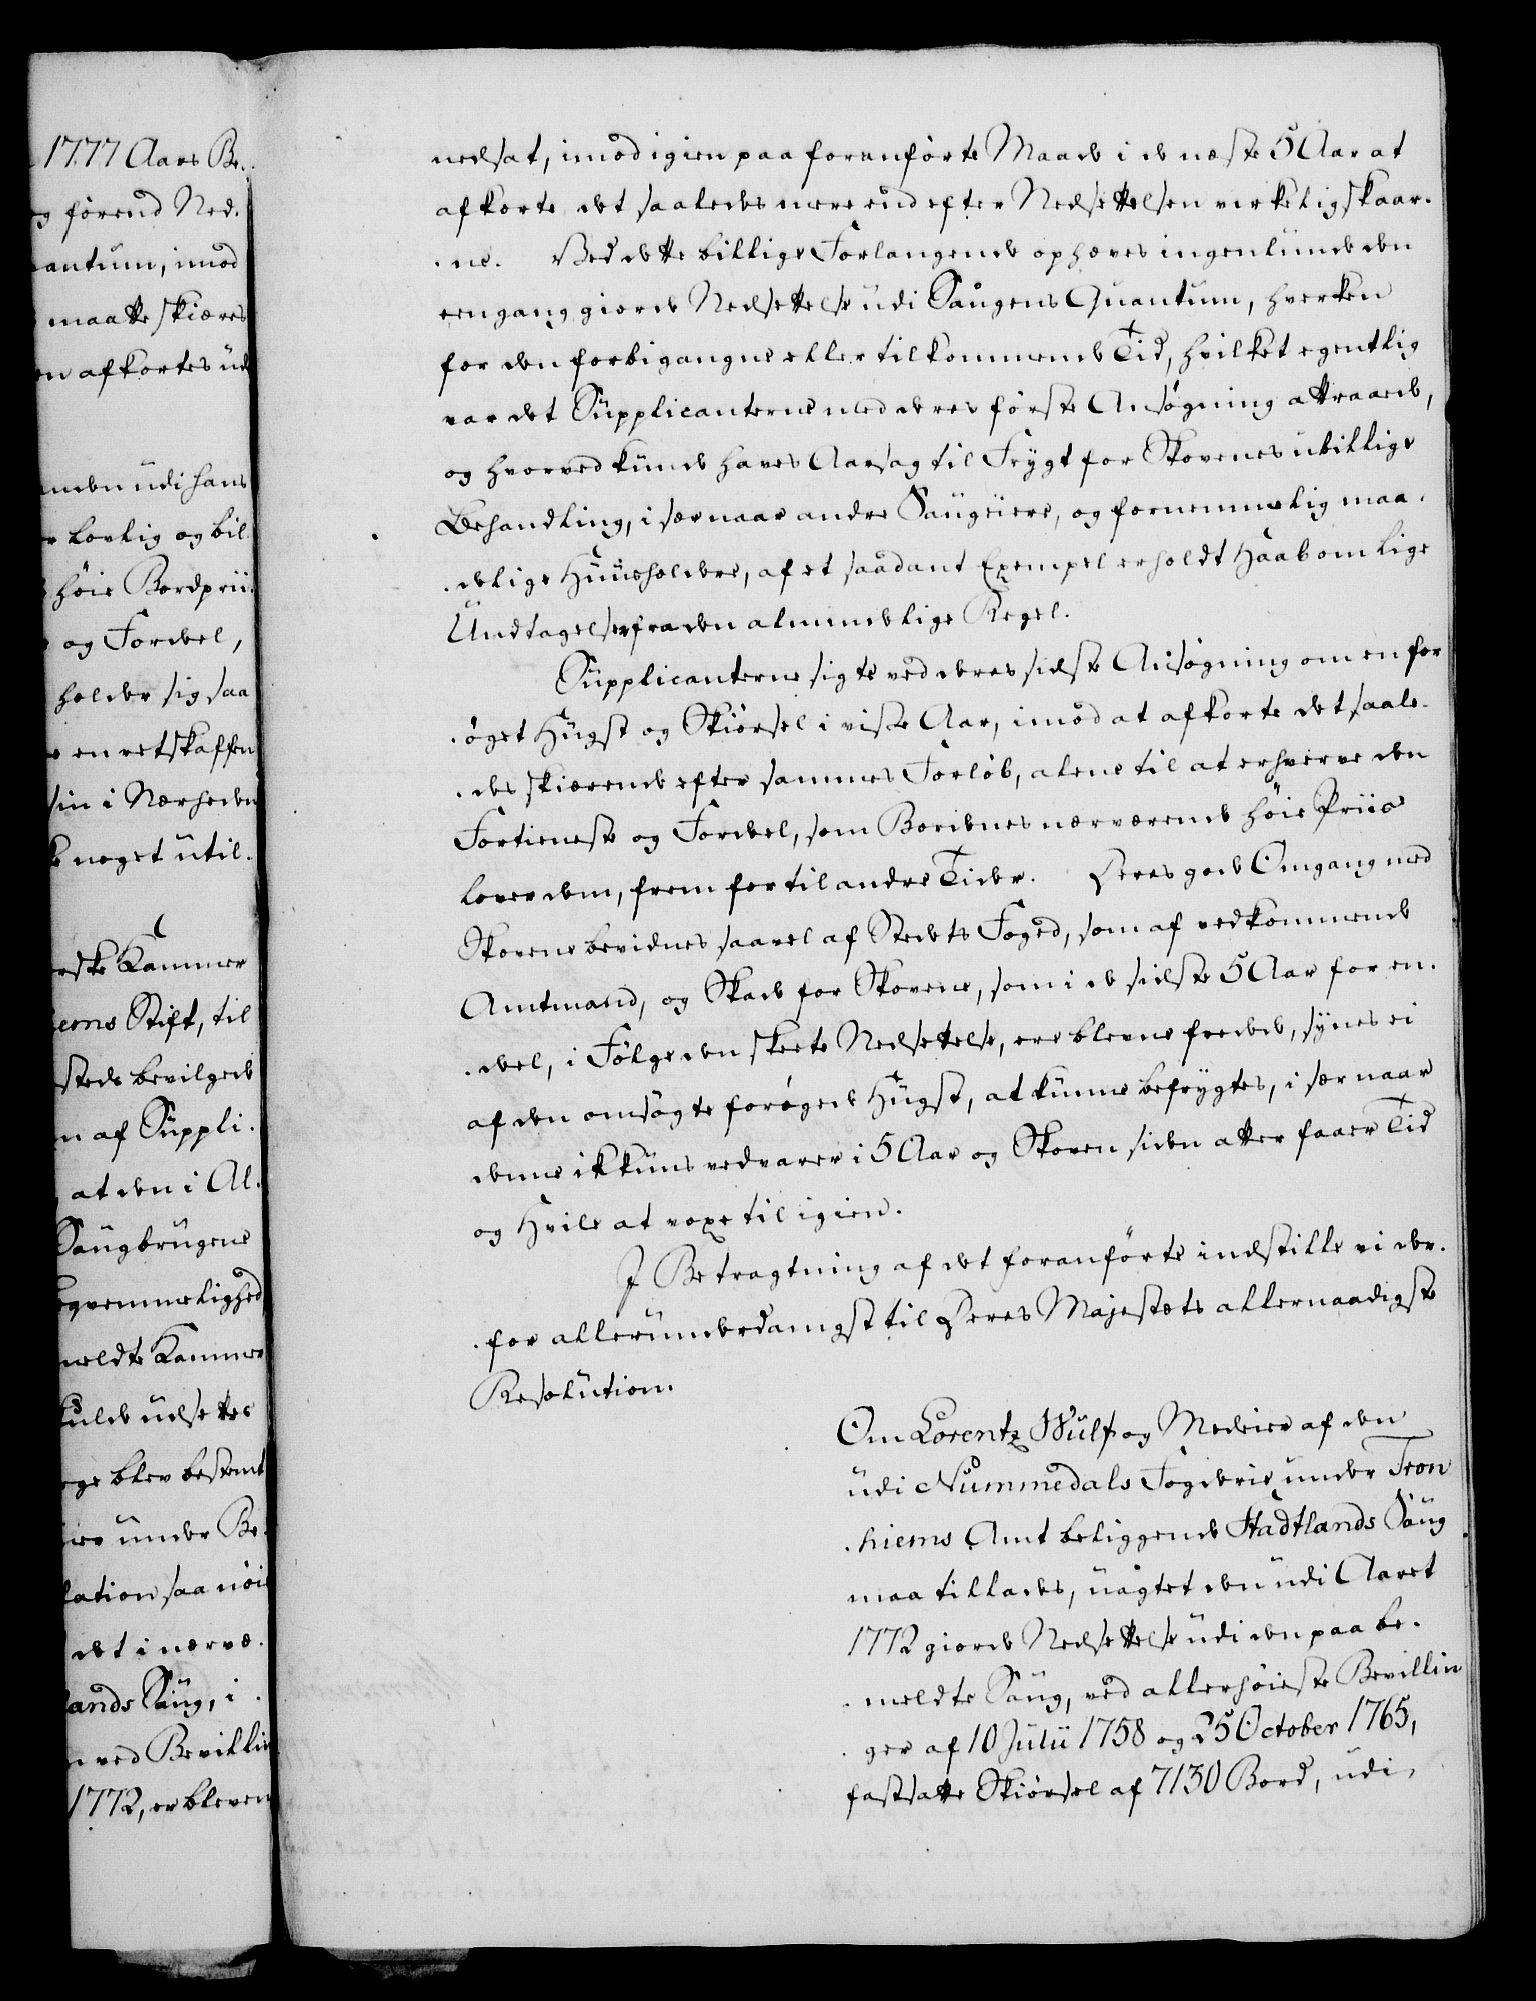 1777 Aars Be-
g førend Ned.
antum, imod
maatte skiæres
en afkortes ud
anden udi hans
r lovlig og bil
høie Bordprii.
og Fordeel,
holder sig saa
en retskaffen
sin i Nærheden
noget util.
rdske Kammer
iems Stift, til
steds bevilgede
n af Suppli.
at den i Al.
Saugbrugene
eqvemmelighed
meldte Kammer
kulde udsettes
ge blev bestemt
ier under Be.
lation saa nøie
det i nærvæ.
lands Saug, i
n ved Bevillin
1772, er bleven
nedsat, imod igien paa foranførte Maade i de næste 5 Aar at
afkorte det saaledes mere end efter Nedsettelsen virkelig skaar.
.ne. Ved dette billige Forlangende ophæves ingenlunde den
eengang giorde Nedsettelse udi Saugens Quantum, hverken
for den forbigangne eller tilkommende Tid, hvilket egentlig
var det Supplicanterne med deres første Ansøgning attraaede,
og hvorved kunde haves Aarsag til Frygt for Skovenes ubillige
Behandling, i sær naar andre Saugeiere, og fornemmelig maa.
.delige Huusholdere, af et saadant Exempel erholdt Haab om lige
Undtagelser fra den almindelige Regel.
Supplicanterne sigte ved deres sidste Ansøgning om en for
.øget Hugst og Skiørsel i visse Aar, imod at afkorte det saale.
.des skiærende efter sammes Forløb, alene til at erhverve den
Fortieneste og Fordeel, som Bordenes nærværende høie Priis
lover dem, frem for til andre Tider. Deres gode Omgang med
Skovene bevidnes saavel af Stedets Foged, som af vedkommende
Amtmand, og Skade for Skovene, som i de sidste 5 Aar for en.
.deel, i Følge den skeete Nedsettelse, ere blevne fredede, synes ei
af den omsøgte forøgede Hugst, at kunne befrygtes, i sær naar
denne ikkuns vedvarer i 5 Aar og Skoven siden atter faaer Tid
og Hvile at voxe til igien.
I Betragtning af det foranførte indstille vi der.
.for allerunderdanigst til Deres Majestæts allernaadigste
Resolution.
Om Lorentz Wulf og Medeier af den
udi Nummedals Fogderie under Tron
.hiems Amt beliggende Stadtlands Saug
maa tillades, uagtet den udi Aaret
1772 giorde Nedsettelse udi den paa be.
.meldte Saug, ved allerhøieste Bevillin
.ger af 10 Julii 1758 og 25 October 1765,
fastsatte Skiørsel af 7130 Bord, udi